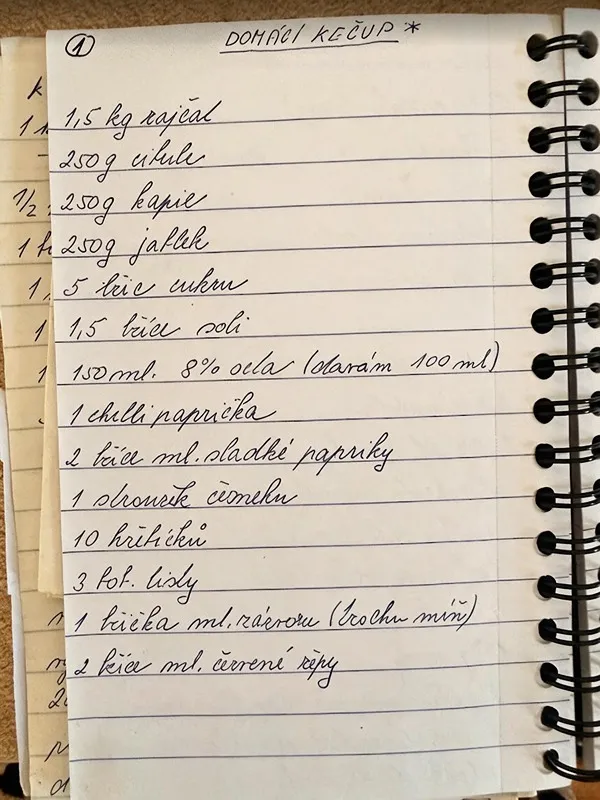 1 DOMÁCÍ KEČUP *
1,5 kg rajčat
250g cibule
250g kapie
250g jablek
5 lžic cukru
1,5 lžíce soli
150ml. 8% octa (dávám 100 ml)
1 chilli paprička
2 lžíce ml. sladké papriky
1 stroužek česneku
10 hřebíčků
3 bob. listy
1 lžička ml. zázvoru (trochu míň)
2 lžíce ml. červené řepy